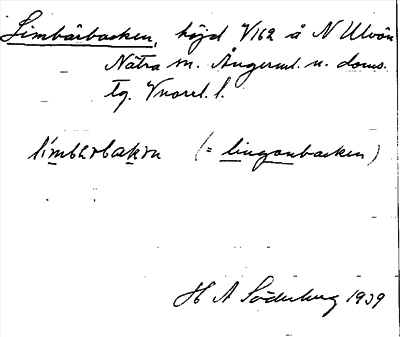 Limbärbacken, höjd V162 å N Ulvön
Nätra sn. Ångerml. n. doms.
tg. Vnorrl. l.
límbærbakɛn (= lingonbacken)
H A Söderberg 1939